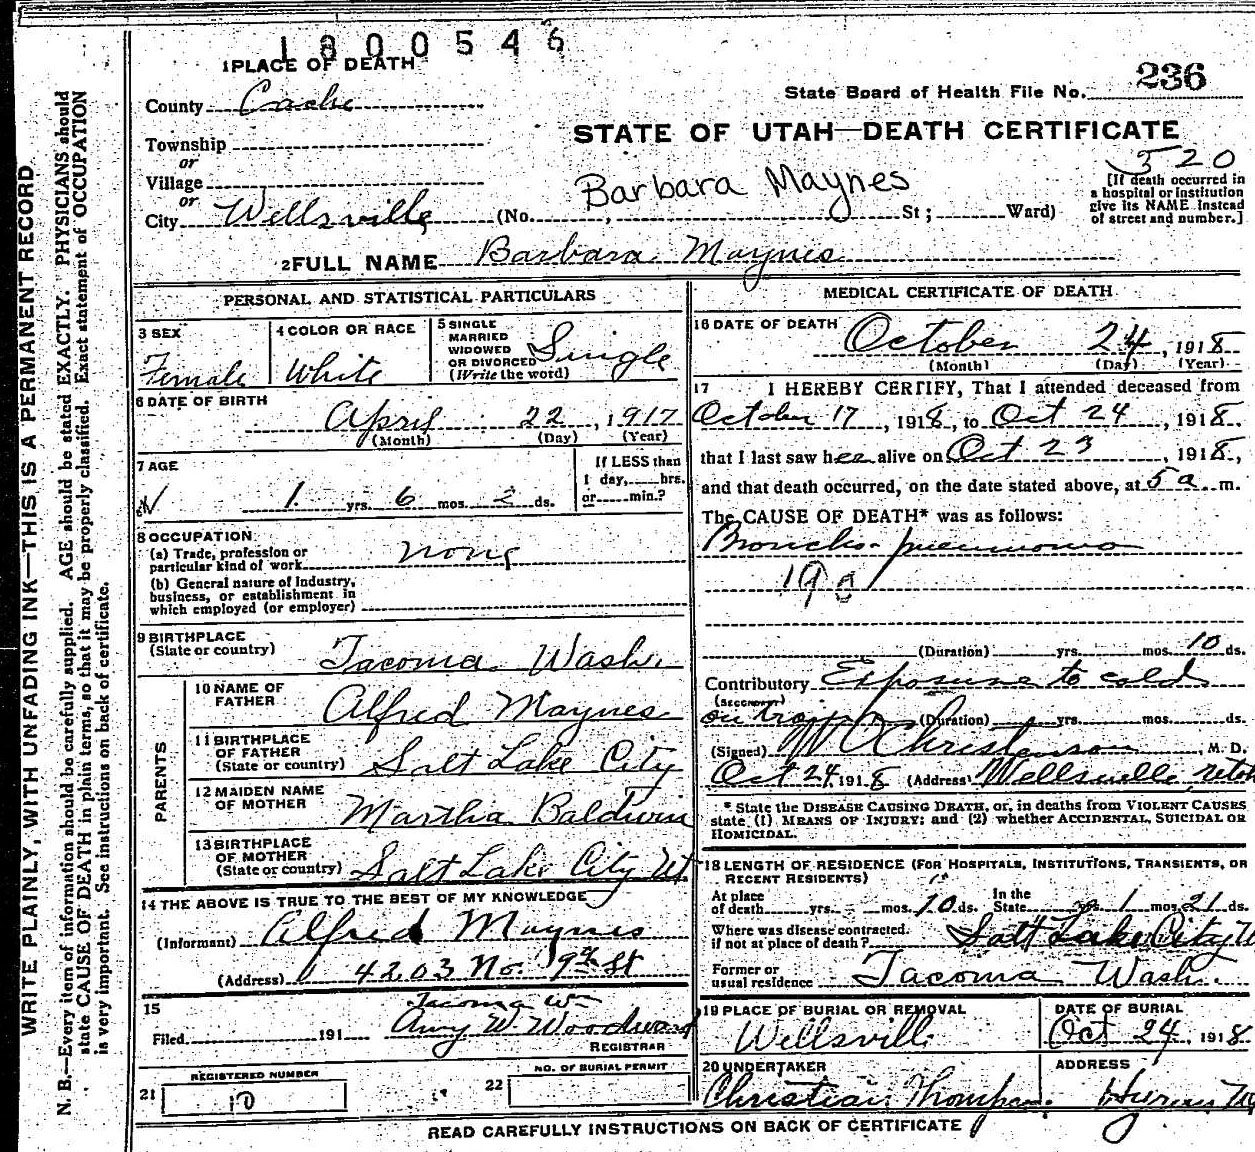 1800546
1 PLACE OF DEATH
County Cache
State Board of Health File No. 236
Township
or
Village
or
City Wellsville (No. , St; Ward)
STATE OF UTAH—DEATH CERTIFICATE
520
Barbara Maynes
[If death occurred in
a hospital or institution
give its NAME instead
of street and number.]
2 FULL NAME Barbara Maynes
PERSONAL AND STATISTICAL PARTICULARS
3 SEX
Female
4 COLOR OR RACE
White
5 SINGLE
MARRIED
WIDOWED
OR DIVORCED
(Write the word)
Single
6 DATE OF BIRTH
April 22, 1917
(Month) (Day) (Year)
7 AGE
1 yrs. 6 mos. 2 ds.
If LESS than
1 day, hrs.
or min.?
8 OCCUPATION
(a) Trade, profession or
particular kind of work none
(b) General nature of Industry,
business, or establishment in
which employed (or employer)
9 BIRTHPLACE
(State or country) Tacoma Wash.
PARENTS
10 NAME OF
FATHER Alfred Maynes
11 BIRTHPLACE
OF FATHER
(State or country) Salt Lake City
12 MAIDEN NAME
OF MOTHER Martha Baldwin
13 BIRTHPLACE
OF MOTHER
(State or country) Salt Lake City Ut.
14 THE ABOVE IS TRUE TO THE BEST OF MY KNOWLEDGE
(Informant) Alfred Maynes
(Address) 4203 No. 9th St
Tacoma Wn
15
Filed 191 Amy W. Woodward
REGISTRAR
21 REGISTERED NUMBER
10
22 NO. OF BURIAL PERMIT
MEDICAL CERTIFICATE OF DEATH
16 DATE OF DEATH
October 24, 1918
(Month) (Day) (Year)
17 I HEREBY CERTIFY, That I attended deceased from
October 17, 1918, to Oct 24, 1918.
that I last saw her alive on Oct 23, 1918,
and that death occurred, on the date stated above, at 5 a m.
The CAUSE OF DEATH* was as follows:
Broncho-pneumonia
(Duration) yrs. mos. 10 ds.
Contributory Exposure to cold
(SECONDARY)
on (Duration) yrs. mos. ds.
(Signed) W O Christenson, M. D.
Oct 24, 1918 (Address) Wellsville, Utah
* State the DISEASE CAUSING DEATH, or, in deaths from VIOLENT CAUSES
state (1) MEANS OF INJURY; and (2) whether ACCIDENTAL, SUICIDAL OR
HOMICIDAL.
18 LENGTH OF RESIDENCE (FOR HOSPITALS, INSTITUTIONS, TRANSIENTS, OR
RECENT RESIDENTS)
At place
of death yrs. mos. 10 ds. In the
State yrs. 1 mos. 21 ds.
Where was disease contracted,
if not at place of death? Salt Lake City U
Former or
usual residence Tacoma Wash.
19 PLACE OF BURIAL OR REMOVAL
Wellsville
DATE OF BURIAL
Oct 24, 1918
20 UNDERTAKER
Christian
ADDRESS
Hyrum
READ CAREFULLY INSTRUCTIONS ON BACK OF CERTIFICATE
WRITE PLAINLY, WITH UNFADING INK—THIS IS A PERMANENT RECORD
N. B.—Every item of information should be carefully supplied. AGE should be stated EXACTLY. PHYSICIANS should
state CAUSE OF DEATH in plain terms, so that it may be properly classified. Exact statement of OCCUPATION
is very important. See instructions on back of certificate.